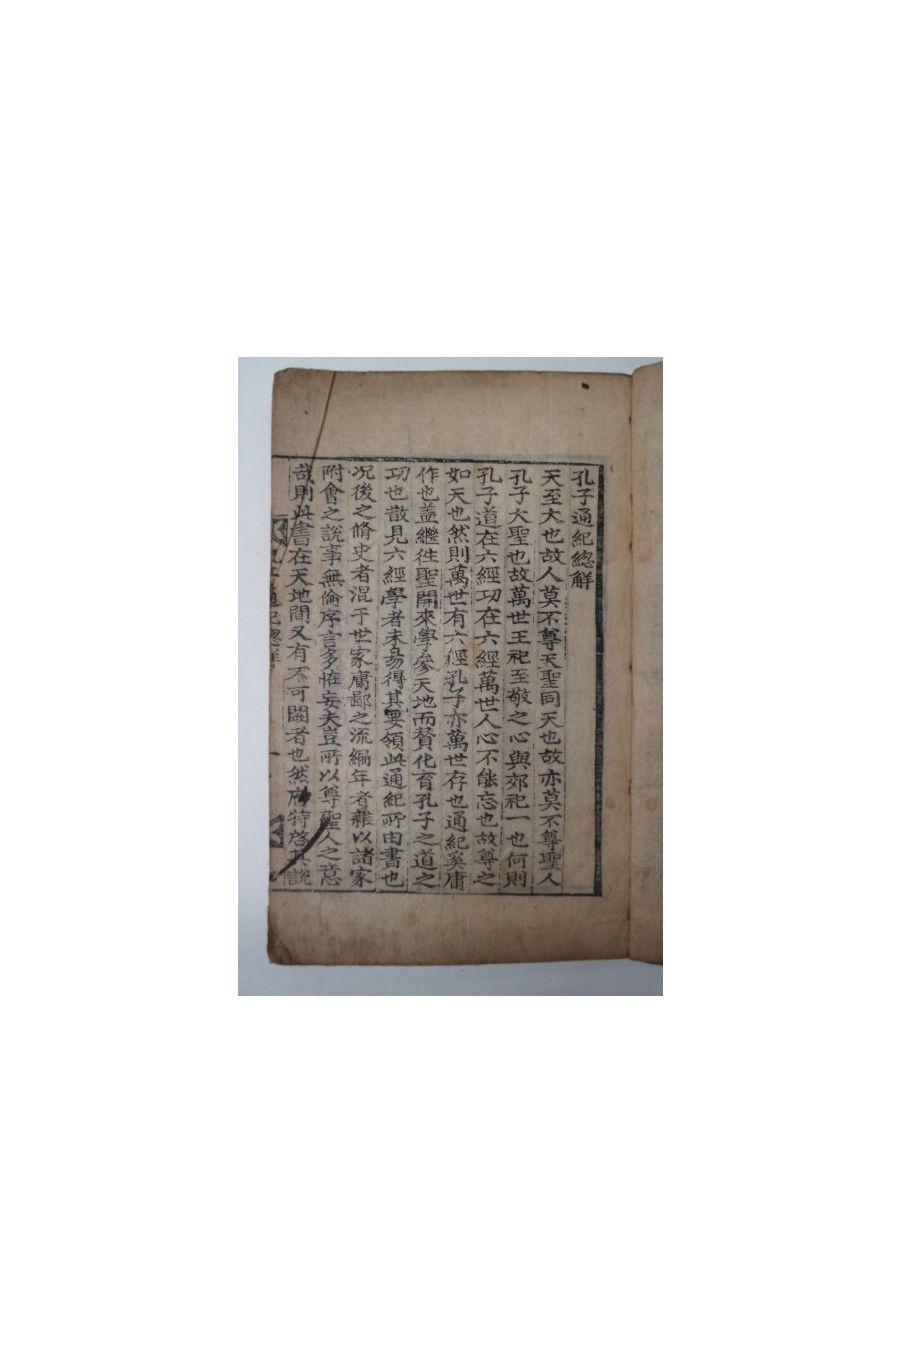 孔子通紀總解
天至大也故人莫不尊天聖同天也故亦莫不尊聖人
孔子大聖也故萬世王祀至敬之心與郊祀一也何則
孔子道在六經功在六經萬世人心不能忘也故尊之
如天也然則萬世有六經孔子亦萬世存也通紀奚庸
作也盖繼徃聖開來學參天地而賛化育孔子之道之
功也散見六經學者未易得其要領此通紀所由書也
况後之脩史者混于世家庸鄙之流編年者雜以諸家
附會之說事無倫序言多恠妄夫豈所以尊聖人之意
哉則此書在天地間又有不可闕者也然 特啓其說
通紀總解
一